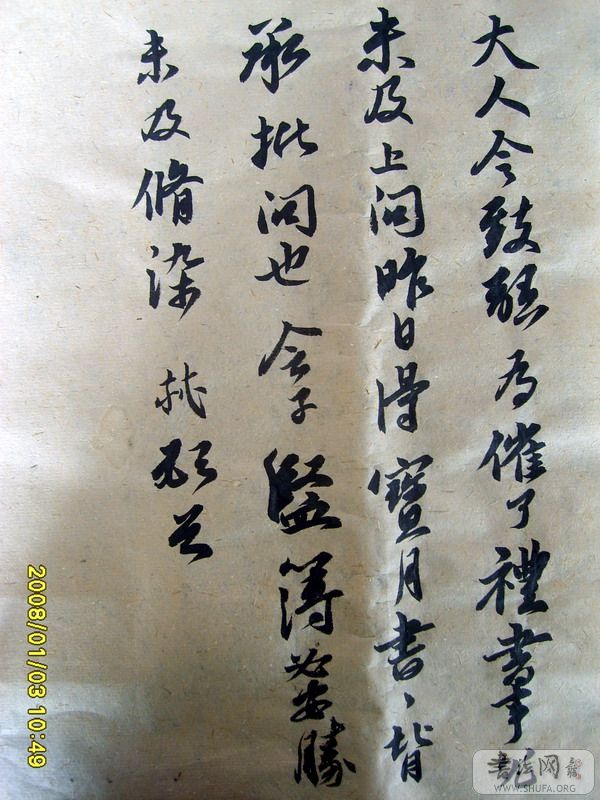 大人令致懇為催了禮書事冗
未及上問昨日得寶月書〻背
承批問也令子監簿必安勝
未及脩染軾頓首
2008/01/03 10:49
书法网
WWW.SHUFA.ORG